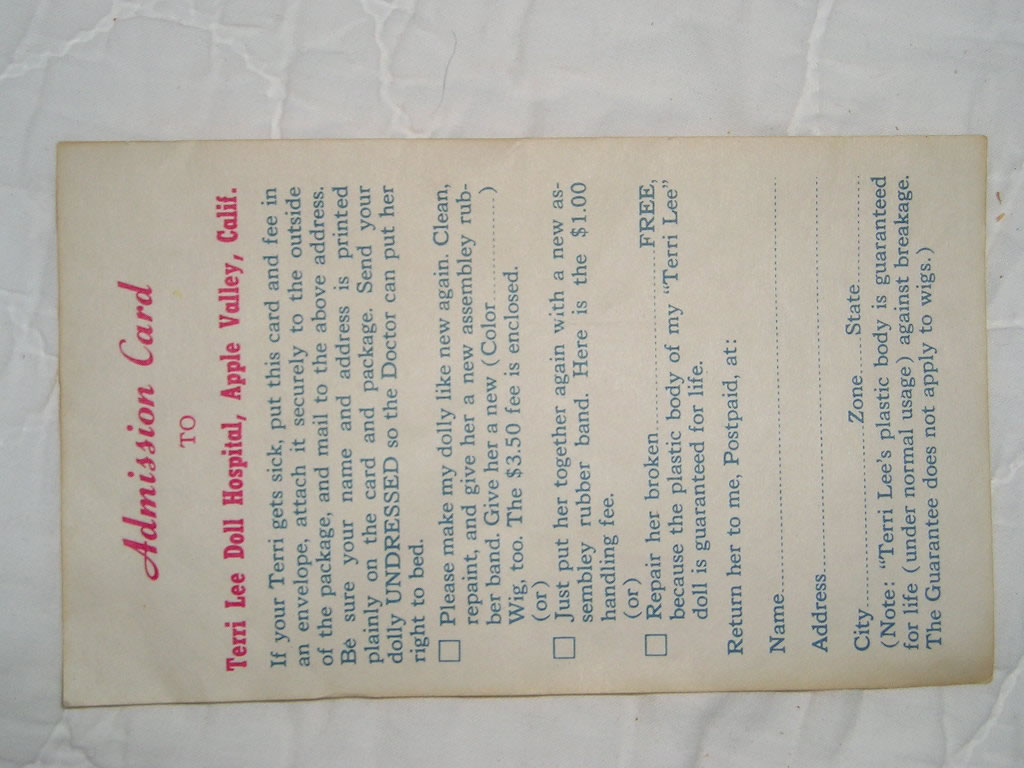 Admission Card
TO
Terri Lee Doll Hospital, Apple Valley, Calif.
If your Terri gets sick, put this card and fee in
an envelope, attach it securely to the outside
of the package, and mail to the above address.
Be sure your name and address is printed
plainly on the card and package. Send your
dolly UNDRESSED so the Doctor can put her
right to bed.
☐ Please make my dolly like new again. Clean,
repaint, and give her a new assembley rub-
ber band. Give her a new (Color..............)
Wig, too. The $3.50 fee is enclosed.
(or)
☐ Just put her together again with a new as-
sembley rubber band. Here is the $1.00
handling fee.
(or)
☐ Repair her broken..............................FREE,
because the plastic body of my "Terri Lee"
doll is guaranteed for life.
Return her to me, Postpaid, at:
Name..............................
Address..............................
City..............................Zone........State..............................
(Note: "Terri Lee's plastic body is guaranteed
for life (under normal usage) against breakage.
The Guarantee does not apply to wigs.)